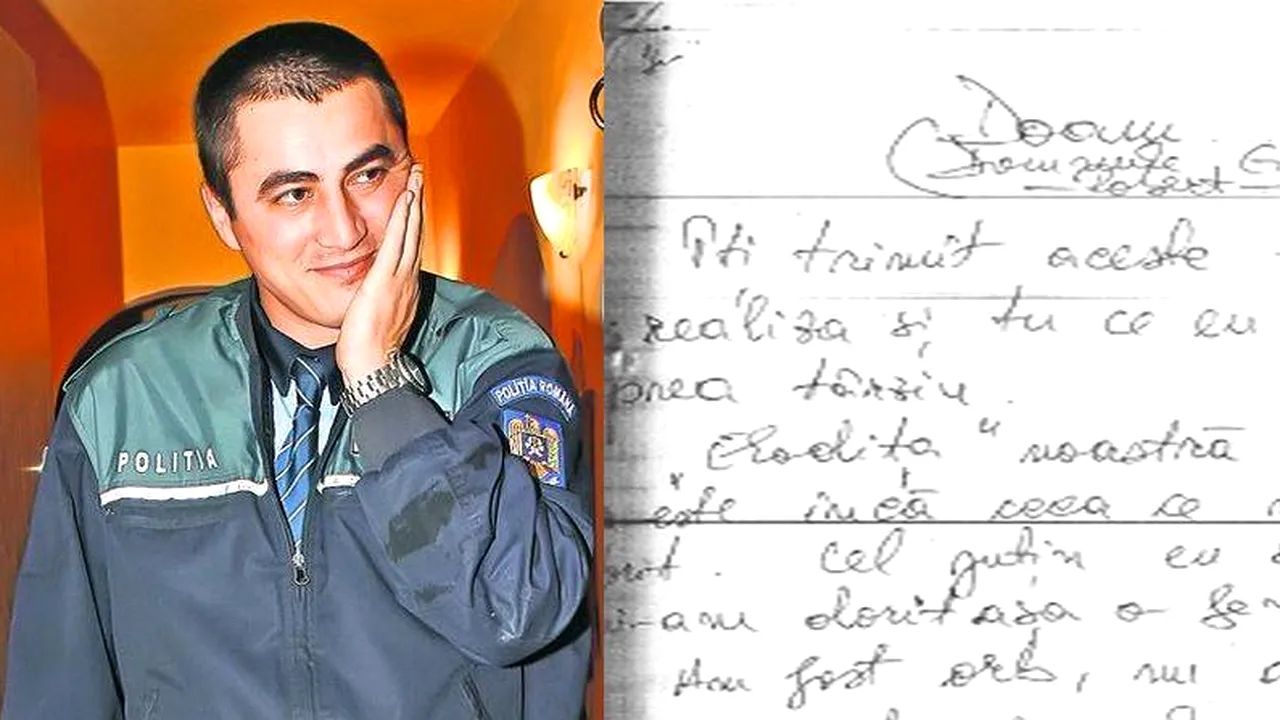 POLIȚIA
POLIȚIA ROMÂNĂ
Doam
Domnule
Robert
Îți trimit aceste
realiza și tu ce eu
prea târziu.
"Erodița" noastră
este încă ceea ce
cel puțin eu
dorit așa o
Am fost orb, nu